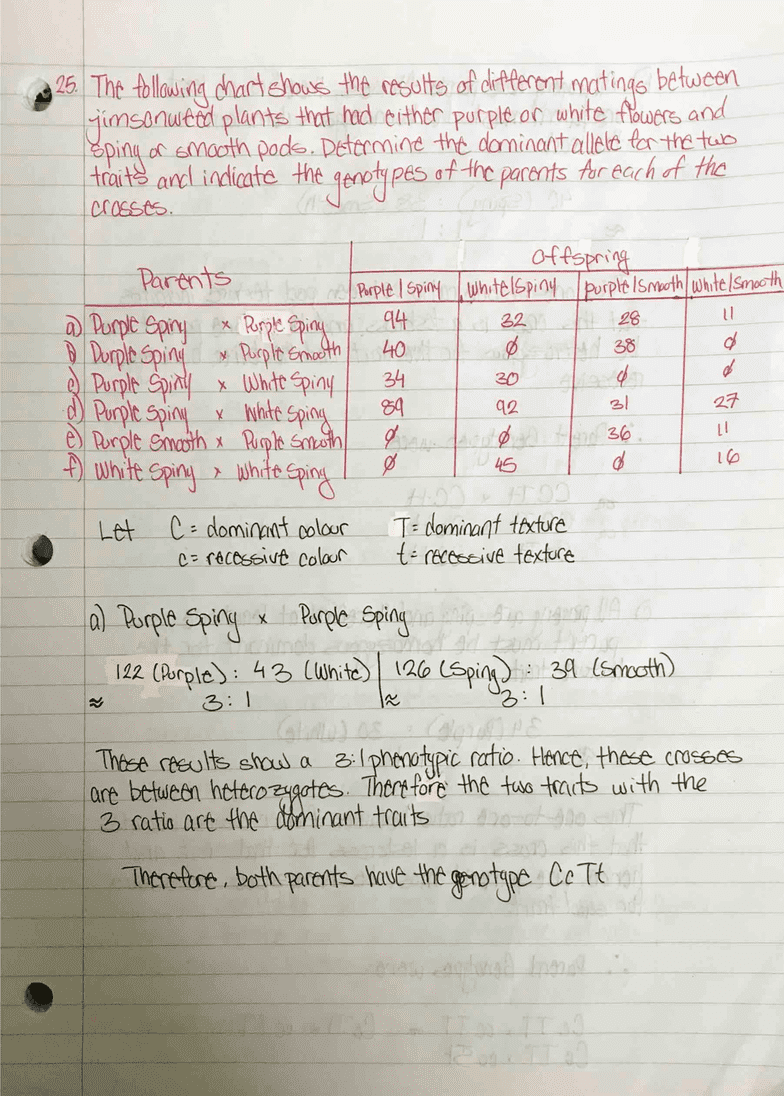 25. The following chart shows the results of different matings between
jimsonweed plants that had either purple or white flowers and
spiny or smooth pods. Determine the dominant allele for the two
traits and indicate the genotypes of the parents for each of the
crosses.
Offspring
Parents
Purple | Spiny White | Spiny purple | Smooth White | Smooth
a) Purple Spiny x Purple Spiny 94 32 28 11
b) Purple Spiny x Purple Smooth 40 ∅ 38 ∅
c) Purple Spiny x White Spiny 34 30 ∅ ∅
d) Purple Spiny x White Spiny 89 92 31 27
e) Purple Smooth x Purple Smooth ∅ ∅ 36 11
f) White Spiny x White Spiny ∅ 45 ∅ 16
Let C = dominant colour T = dominant texture
c = recessive colour t = recessive texture
a) Purple Spiny x Purple Spiny
122 (Purple) : 43 (White) | 126 (Spiny) : 39 (Smooth)
≈ 3:1 ≈ 3:1
These results show a 3:1 phenotypic ratio. Hence, these crosses
are between heterozygotes. Therefore the two traits with the
3 ratio are the dominant traits
Therefore, both parents have the genotype CcTt